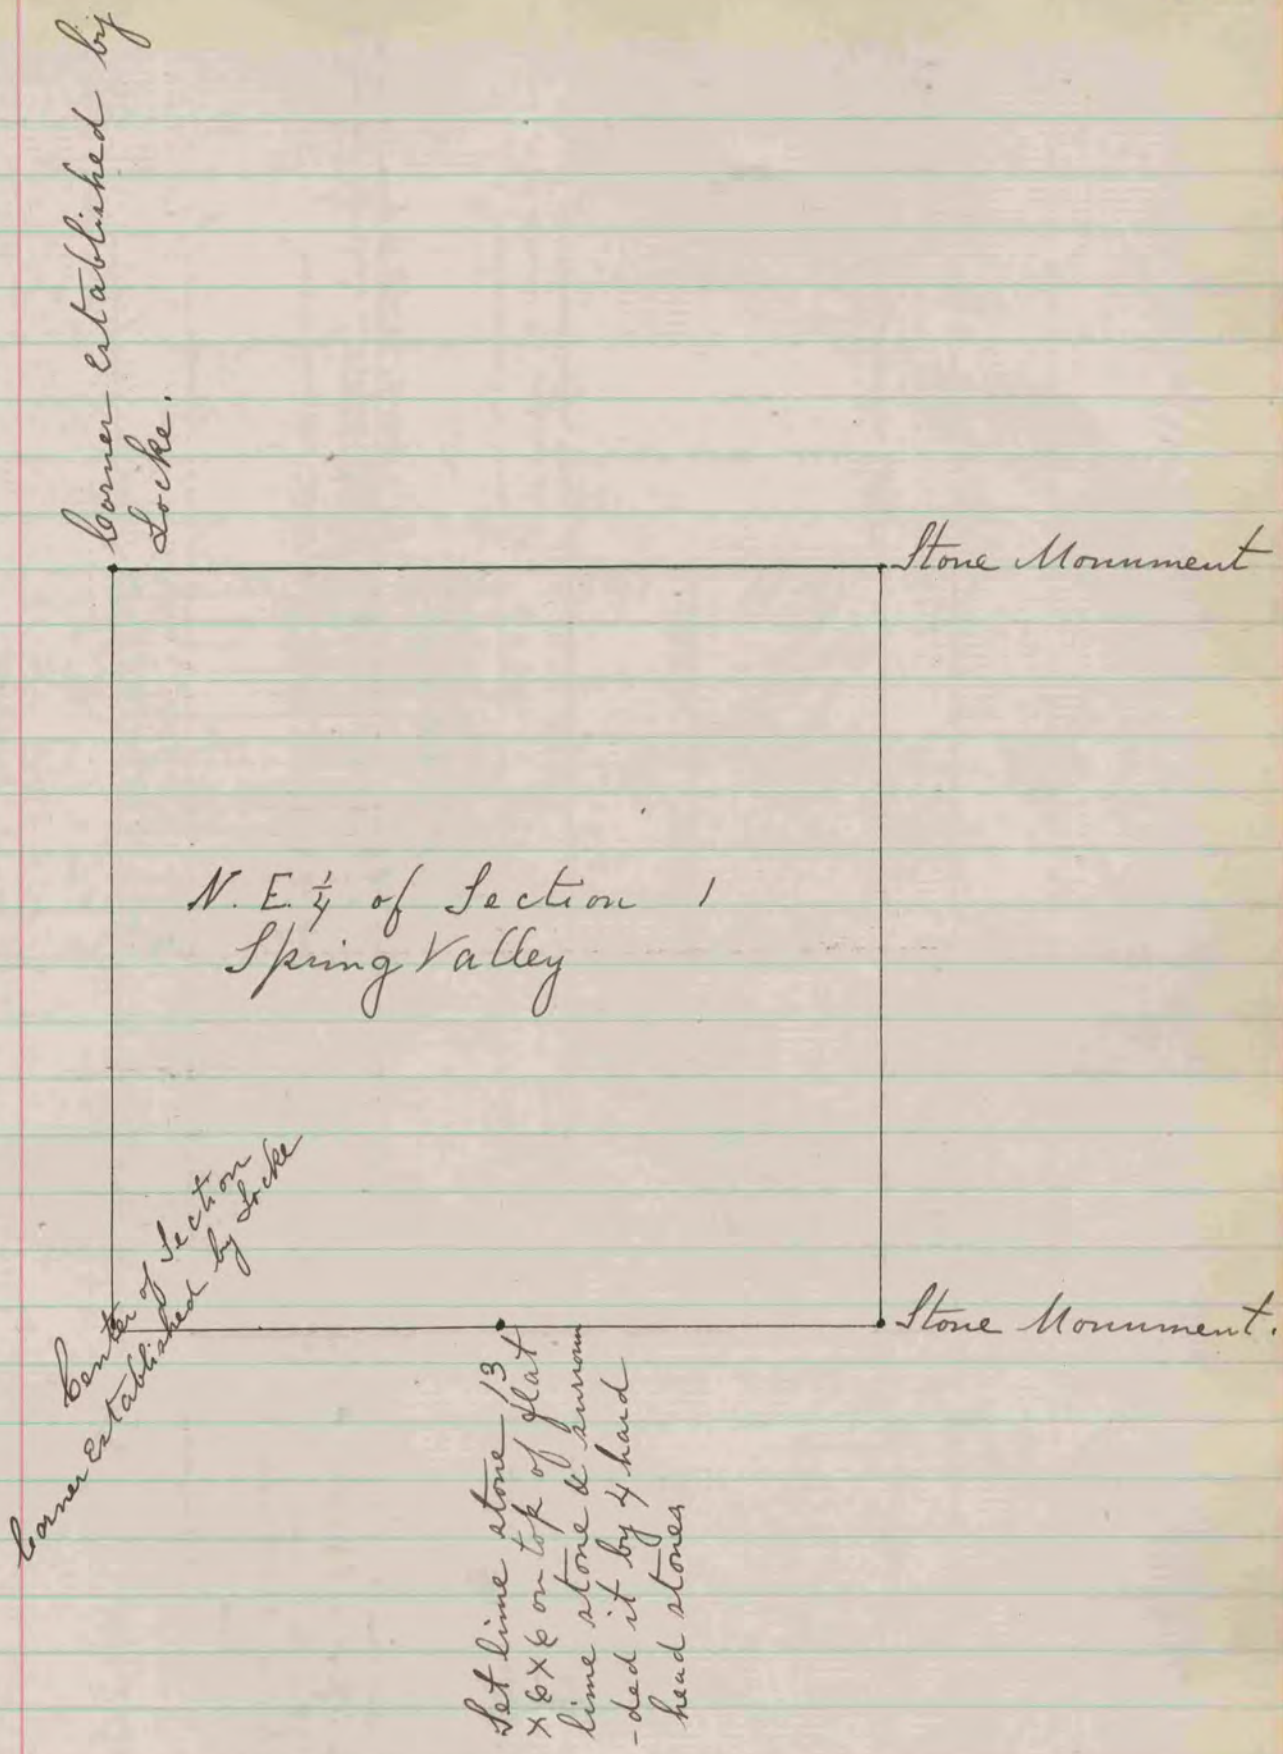 Corner established by
Locke.
Stone Monument
N. E. 1/4 of Section 1
Spring Valley
Center of Section
Corner Established by Locke
Stone Monument.
Set lime stone 13
x6x6 on top of flat
lime stone & surroun
-ded it by 4 hard
head stones